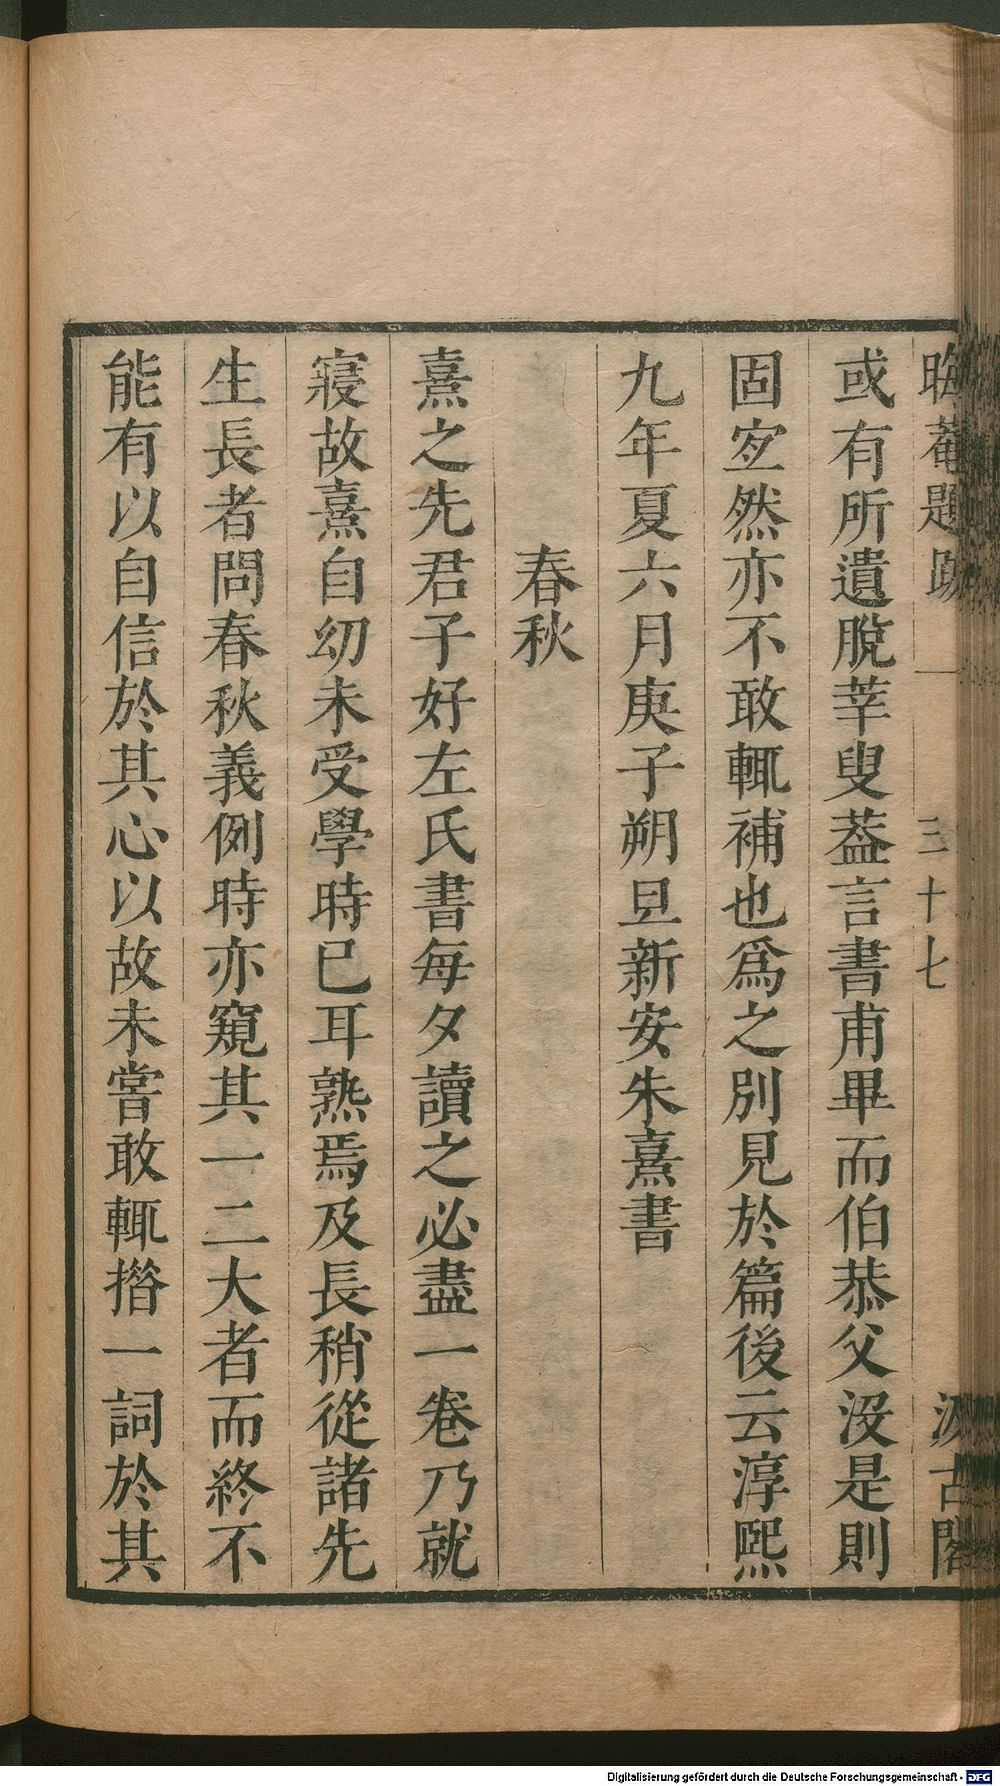 晦菴題跋 一 三十七 汲古閣
或有所遺脫莘叟葢言書甫畢而伯恭父沒是則
固宐然亦不敢輒補也爲之別見於篇後云淳熙
九年夏六月庚子朔旦新安朱熹書
春秋
熹之先君子好左氏書每夕讀之必盡一卷乃就
寢故熹自幼未受學時已耳熟焉及長稍從諸先
生長者問春秋義例時亦窺其一二大者而終不
能有以自信於其心以故未嘗敢輒措一詞於其
Digitalisierung gefördert durch die Deutsche Forschungsgemeinschaft - DFG